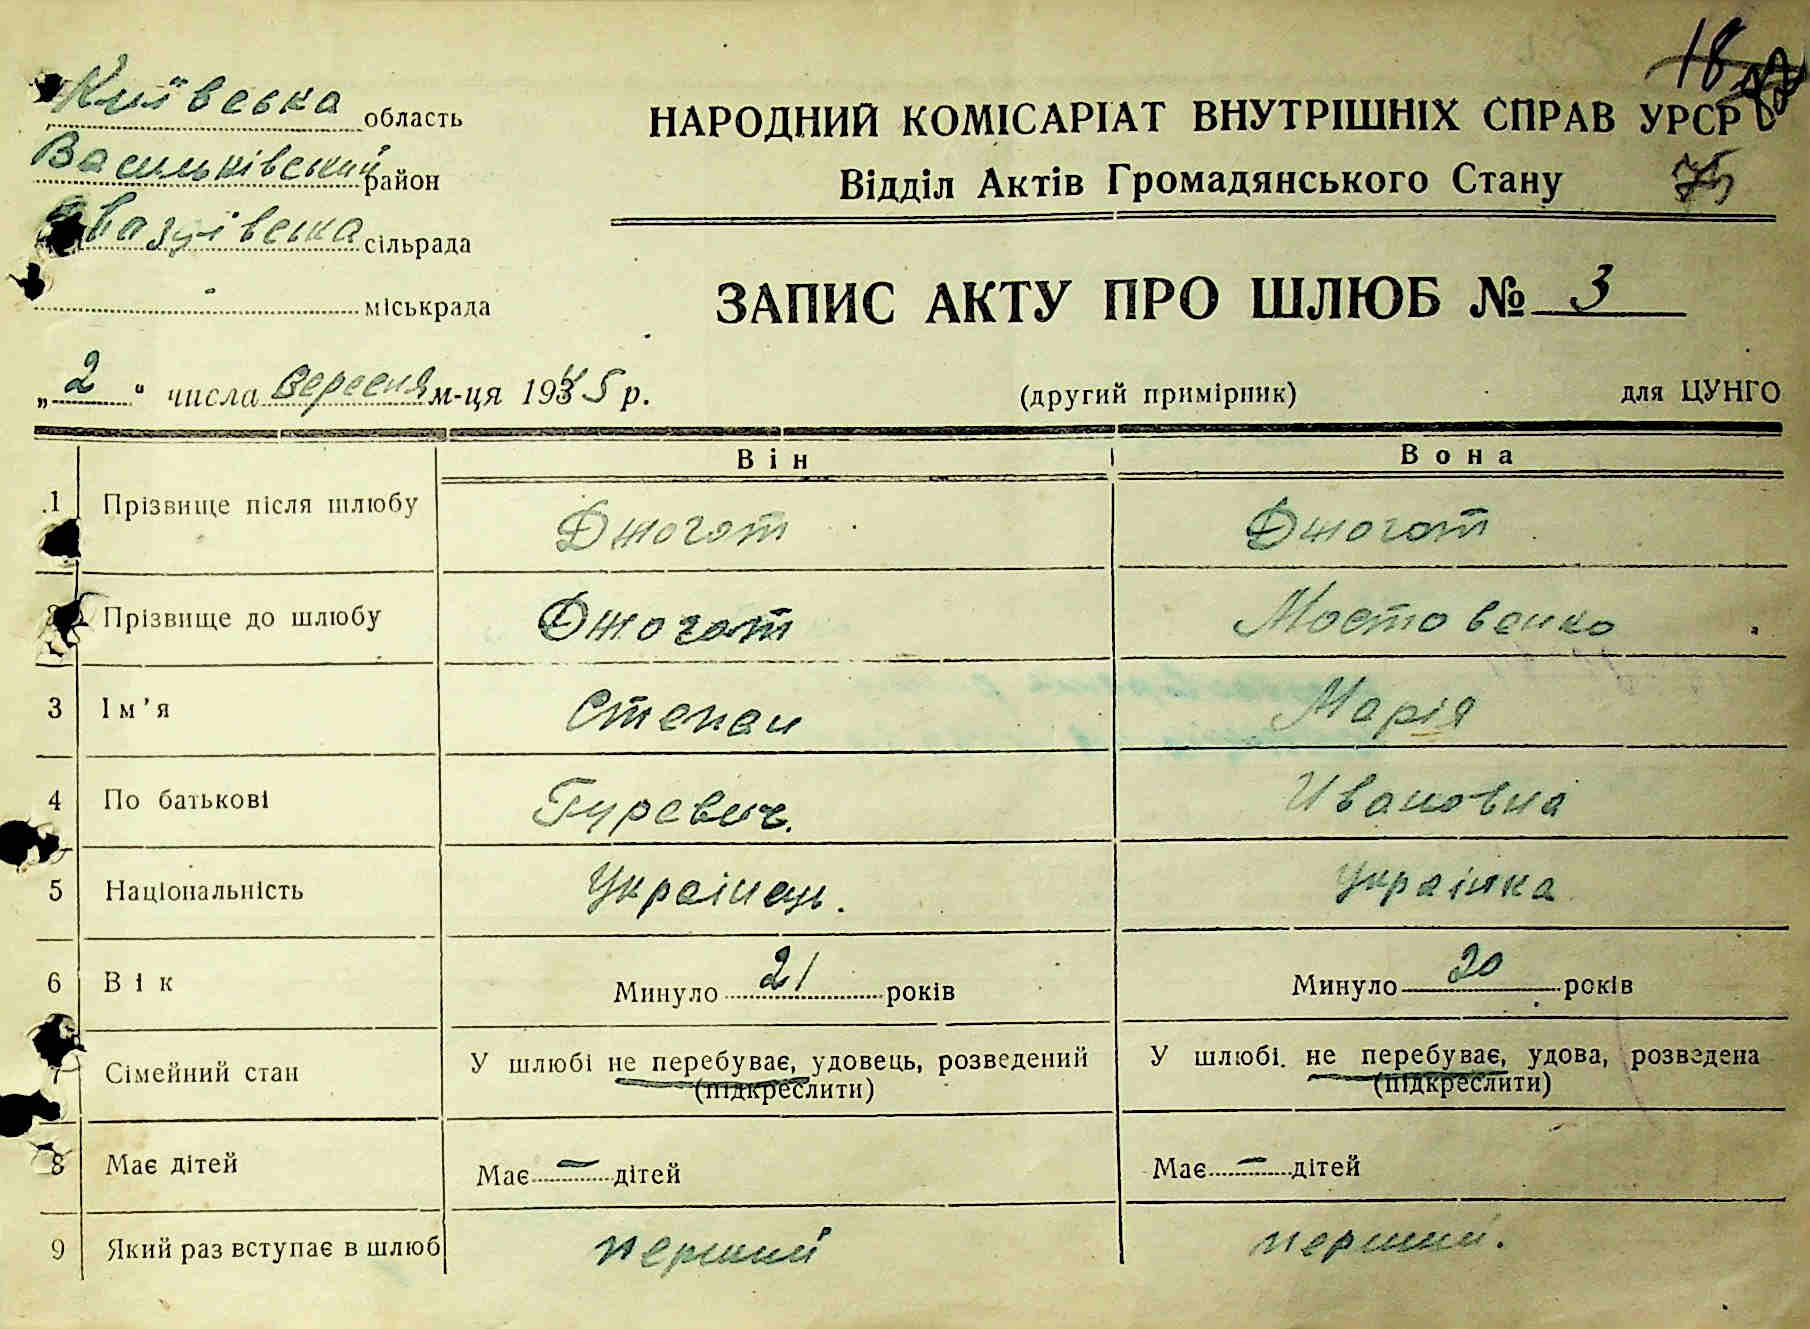 18
Київська область
Васильківський район
сільрада
міськрада
НАРОДНИЙ КОМІСАРІАТ ВНУТРІШНІХ СПРАВ УРСР
Відділ Актів Громадянського Стану
ЗАПИС АКТУ ПРО ШЛЮБ № 3
„2“ числа Вересня м-ця 1945 р.
(другий примірник)
для ЦУНГО
Він
Вона
1 Прізвище після шлюбу Джогот Джогот
2 Прізвище до шлюбу Джогот Мостовенко
3 Ім'я Степан Марія
4 По батькові Гуревич. Ивановна
5 Національність Українець. Українка
6 Вік Минуло 21 років Минуло 20 років
7 Сімейний стан У шлюбі не перебуває, удовець, розведений У шлюбі. не перебуває, удова, розведена
(підкреслити) (підкреслити)
8 Має дітей Має — дітей Має — дітей
9 Який раз вступає в шлюб перший перший.